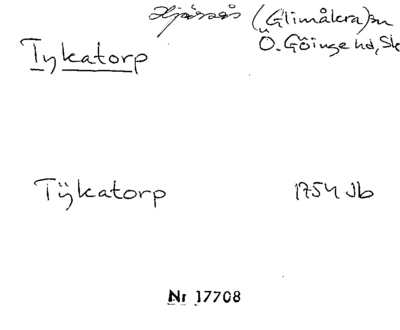 Hjärsås (Glimåkra) sn
Tykatorp Ö. Göinge hd, Sk
Tÿkatorp 1754 Jb
Nr 17708